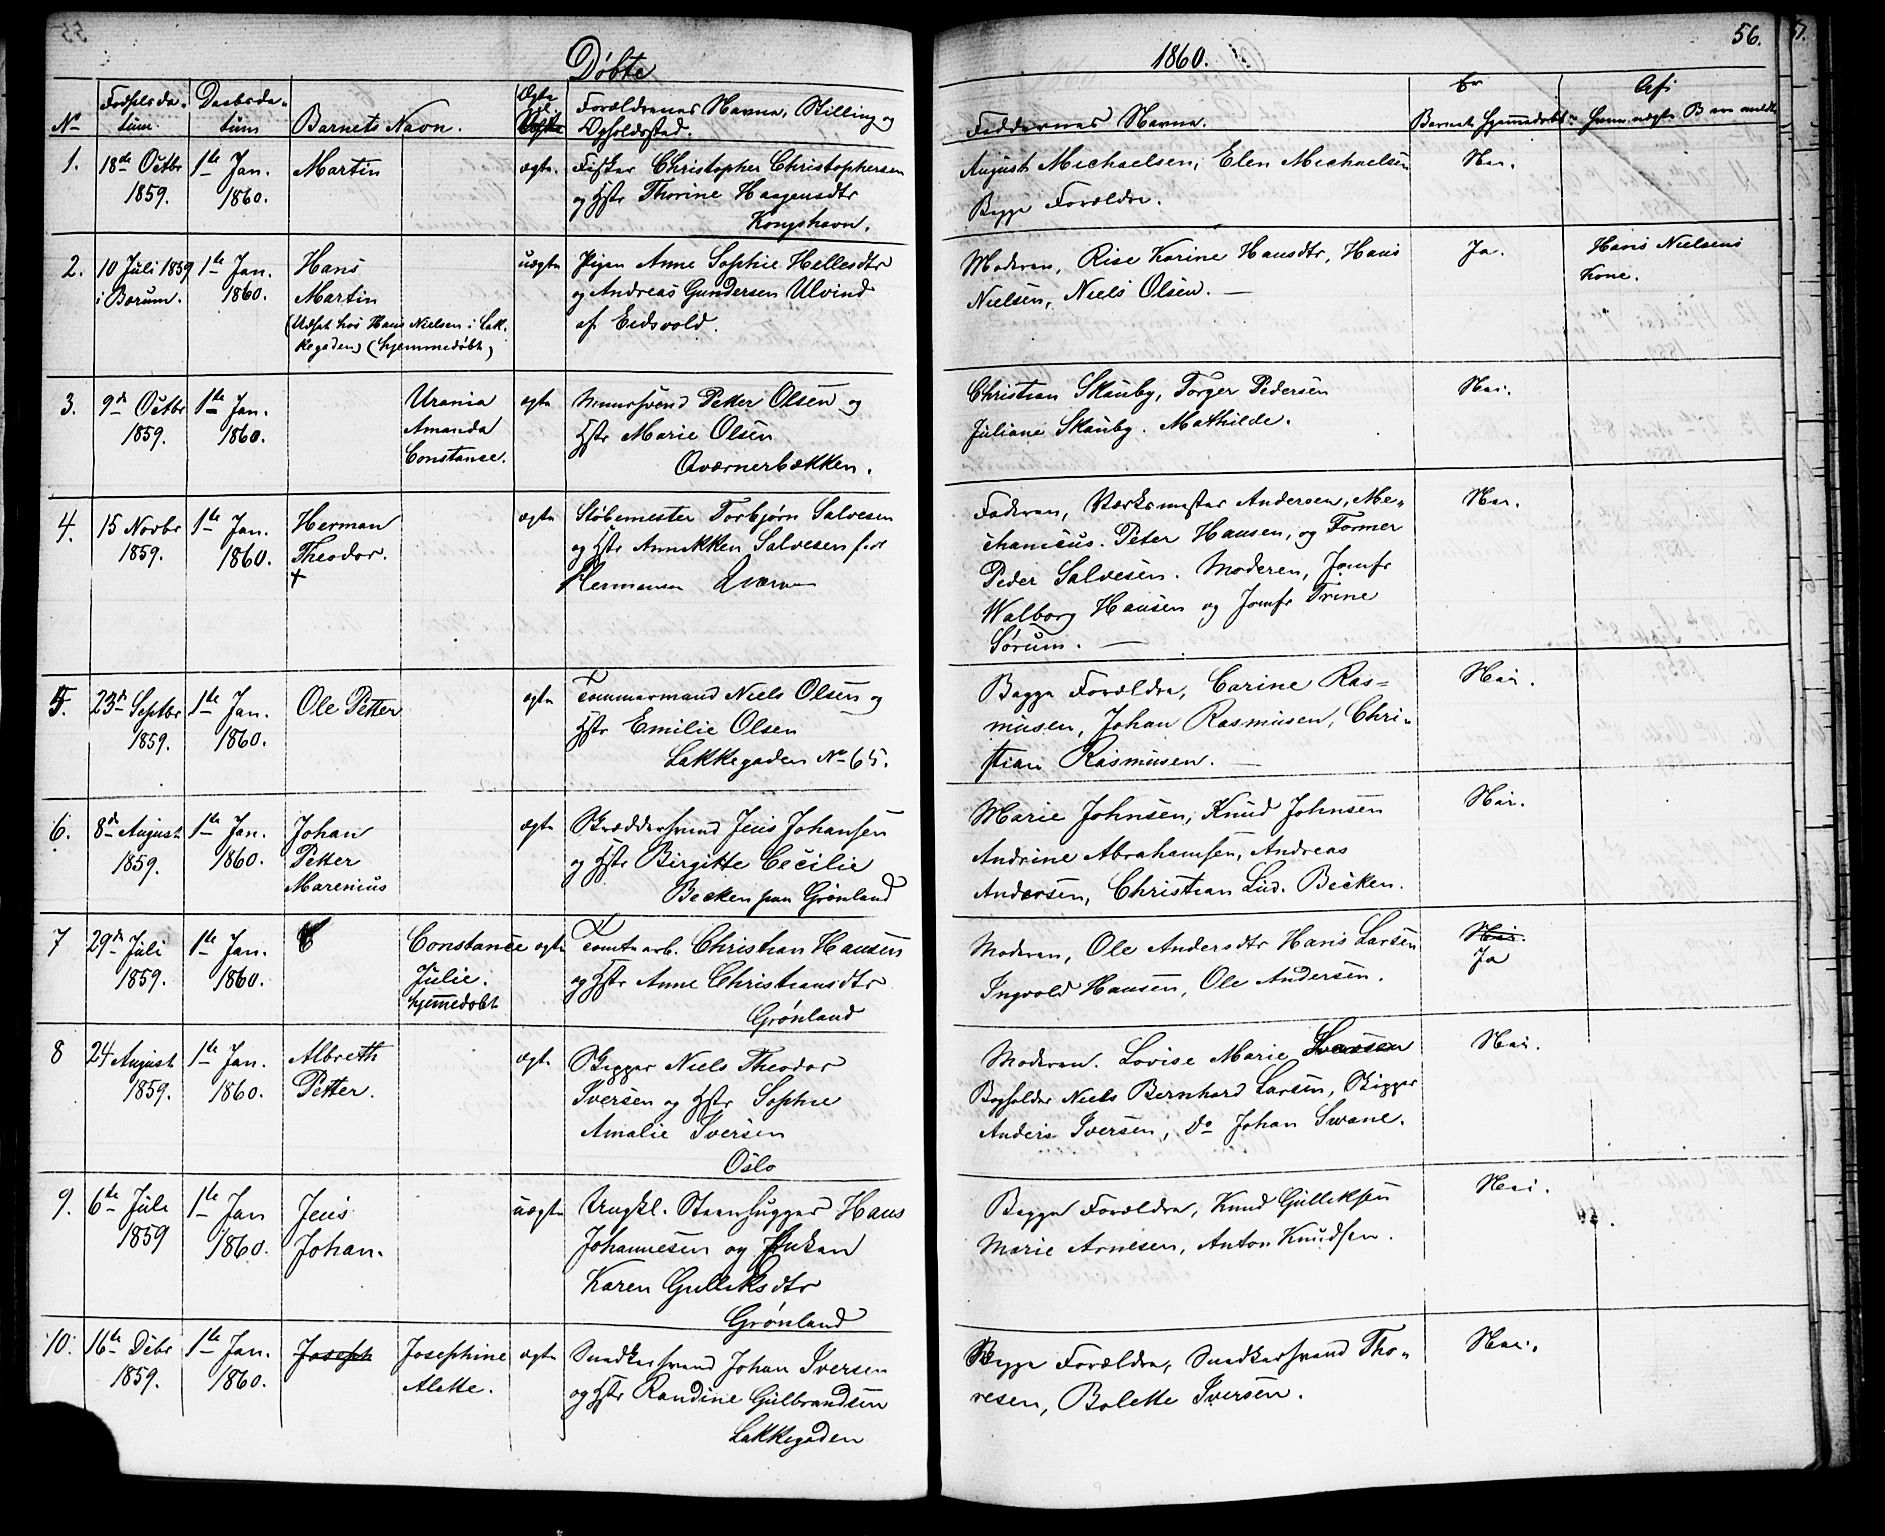 Døbte
1860.
56.
No
Fødselsda-
tum
Daabsda-
tum
Barnets Navn.
Ægte
Forældrenes Navne, Stilling og
Opholdssted.
Faddernes Navne.
Er
Barnet hjemmedøbt
Af
1.
18de Octbr
1859.
1te Jan.
1860.
Martin
ægte.
Fisker Christopher Christophersen
og Hstr Thorine Haagensdtr
Kongshavn.
August Michaelsen, Elen Michaelsen
Begge Forældre.
Nei.
2.
10 Juli 1859
i Bærum.
1te Jan.
1860.
Hans
Martin
(Udsat hos Hans Nielsen i Lak-
kegaden) (hjemmedøbt)
uægte
Pigen Anne Sophie Hellesdtr
og Andreas Gundersen Ulvind
af Eidsvold.
Moderen, Rise Karine Hansdtr, Hans
Nielsen, Niels Olsen. —
Ja.
Hans Nielsens
Kone.
3.
9de Octbr
1859.
1te Jan.
1860.
Urania
Amanda
Constance.
ægte
Muursvend Peter Olsen og
Hstr Marie Olsen
Qværnerbækken.
Christian Skauby, Torger Pedersen
Juliane Skauby. Mathilde.
Nei.
4.
15 Novbr
1859.
1te Jan.
1860.
Herman
Theodor.
+
ægte
Støbemester Torbjørn Salvesen
og Hstr Annikken Salvesen f.
Hermansen Qværn
Faderen, Værksmester Andersen, Me-
chanicus. Peter Hansen, og Former
Peder Salvesen. Moderen, Jomfr
Walborg Hansen og Jomfr Trine
Sørum. —
Nei.
5.
23de Septbr
1859.
1te Jan.
1860.
Ole Petter
ægte
Tømmermand Niels Olsen og
Hstr Emilie Olsen
Lakkegaden No 65.
Begge Forældre, Carine Ras-
musen, Johan Rasmusen, Chri-
stian Rasmusen. —
Nei.
6.
8de August
1859.
1te Jan.
1860.
Johan
Petter
Marenius
ægte
Skræddersvend Jens Johansen
og Hstr Birgitte Cecilie
Becken paa Grønland
Marie Johnsen, Knud Johnsen
Andrine Abrahamsen, Andreas
Andersen, Christian Lud. Becken.
Nei.
7
29de Juli
1859.
1te Jan.
1860.
C
Constance
Julie.
hjemmedøbt
ægte
Tomtearb. Christian Hansen
og Hstr Anne Christiansdtr
Grønland
Moderen, Ole Andersdtr Hans Larsen
Ingvold Hansen, Ole Andersen.
Nei.
Ja
8
24 August
1859.
1te Jan.
1860.
Albreth
Petter.
ægte
Skipper Niels Theodor
Iversen og Hstr Sophie
Amalie Iversen
Oslo
Moderen. Lovise Marie Iversen
Bogholder Niels Bernhard Larsen, Skipper
Anders Iversen, Do Johan Swane.
Nei.
9.
6te Juli
1859
1te Jan
1860.
Jens
Johan.
uægte
Ungkl. Steenhugger Hans
Johannesen og Enken
Karen Gulliksdtr
Grønland
Begge Forældre, Knud Gulliksen
Marie Arnesen, Anton Knudsen.
Nei.
10.
16te Debr
1859.
1te Jan.
1860.
Joseph
Josephine
Alette.
ægte
Snedkersvend Johan Iversen
og Hstr Randine Gulbrandsen
Lakkegaden
Begge Forældre, Snedkersvend Tho-
resen, Bolette Iversen.
Nei.